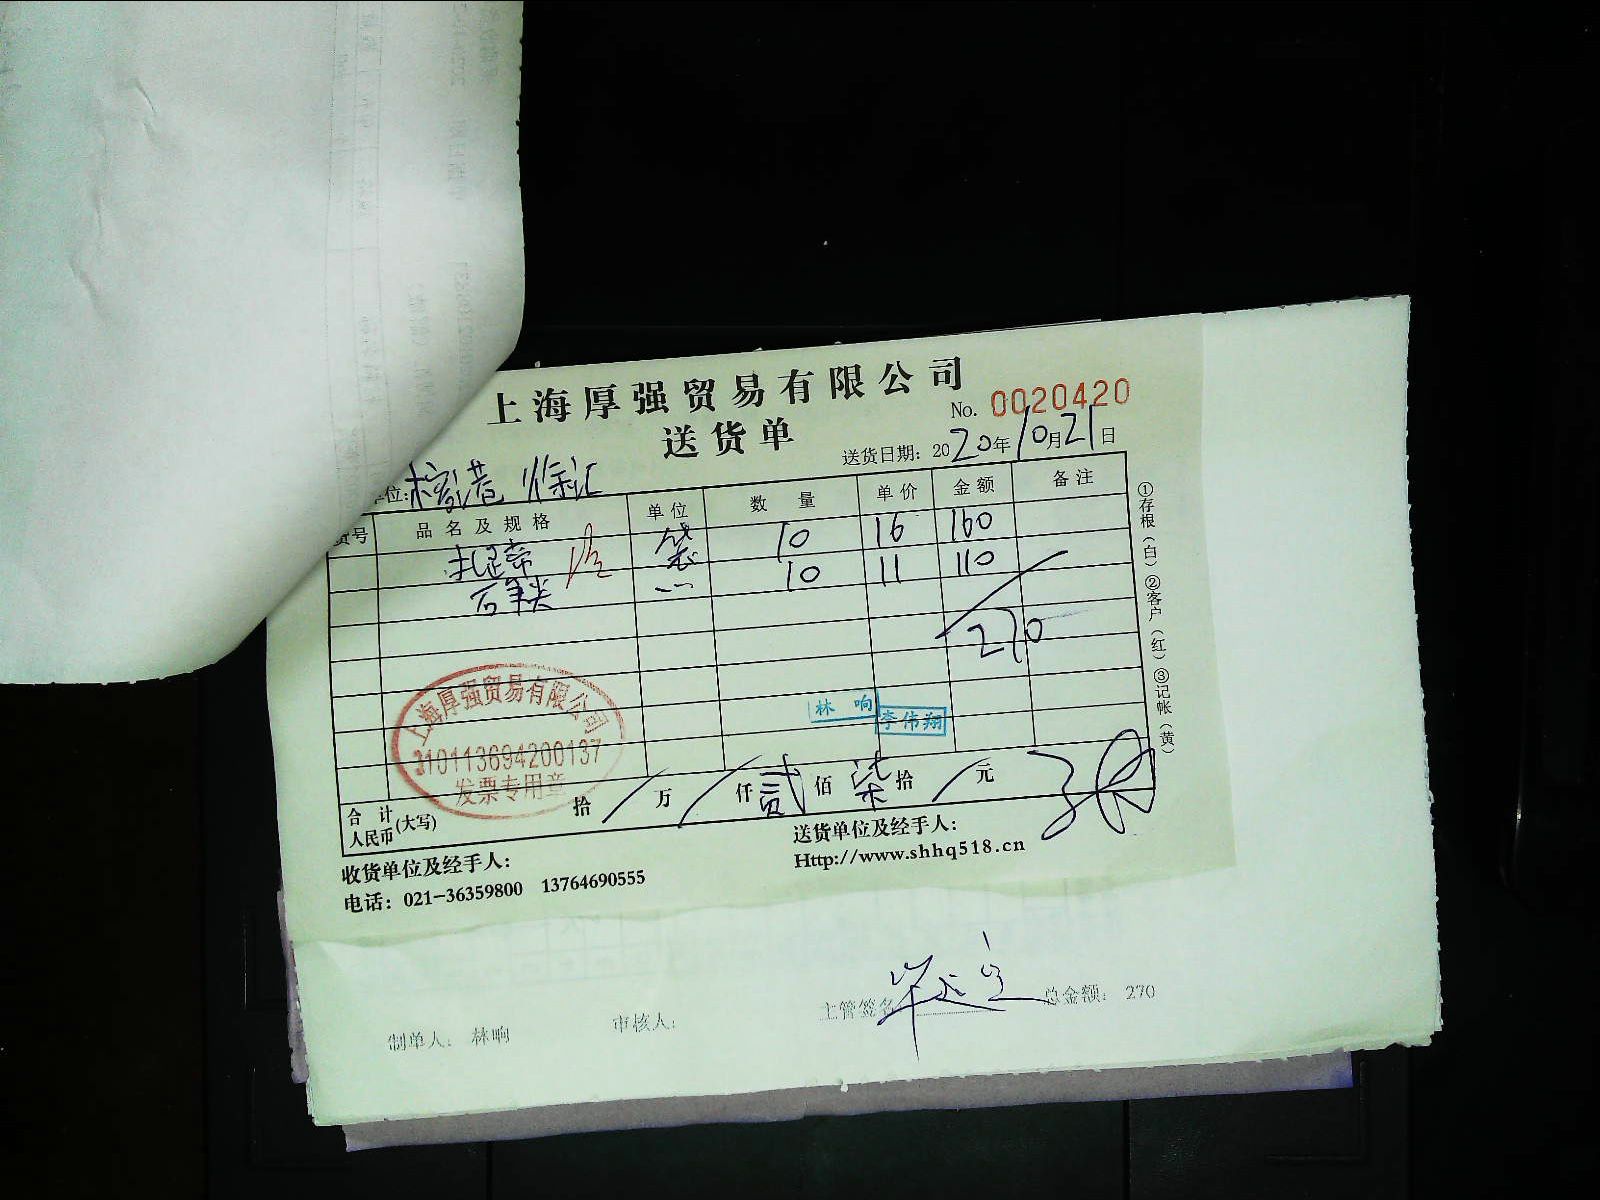 上海厚强贸易有限公司
No. 0020420
送货单
送货日期: 2020年10月21日
位:
货号 品名及规格 单位 数量 单价 金额 备注
扎带 袋 10 16 160
石笔 10 11 110
270
林响
李伟翔
上海厚强贸易有限公司
310113694200137
发票专用章
合计人民币(大写) 拾 / 万 / 仟 贰 佰 柒 拾 / 元
收货单位及经手人:
送货单位及经手人:
电话: 021-36359800 13764690555
Http://www.shhq518.cn
①存根(白)②客户(红)③记帐(黄)
制单人: 林响 审核人: 主管签名 总金额: 270